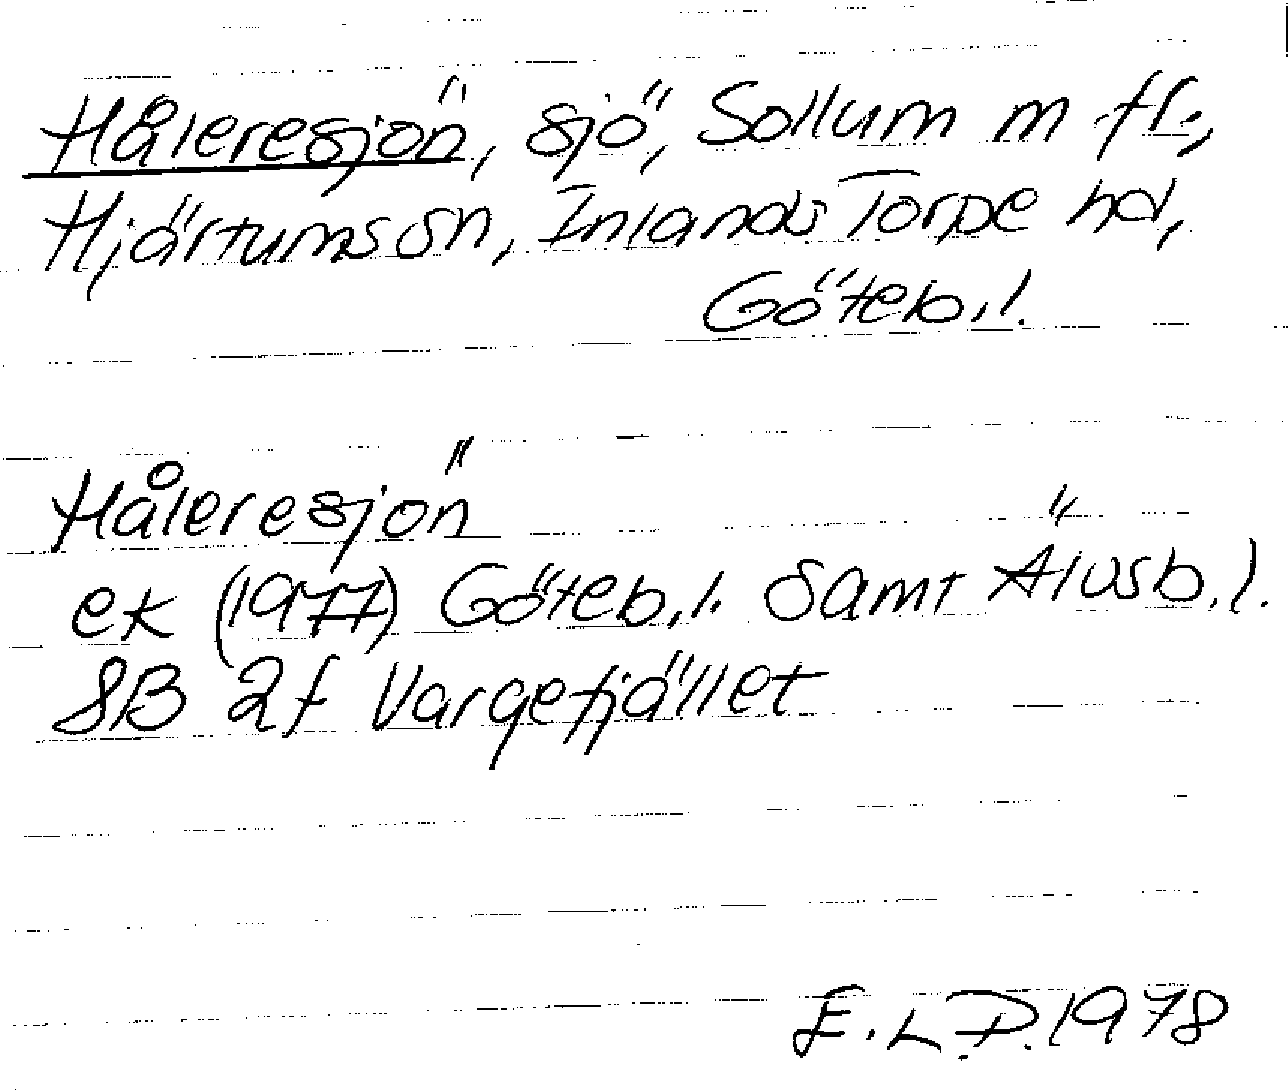 Håleresjön, sjö, Sollum m fl.,
Hjärtums sn, Inlands Torpe hd,
Göteb.l.
Håleresjön
ek (1977) Göteb.l. samt Älvsb.l.
8B 2f Vargefjället
E.L.P. 1978